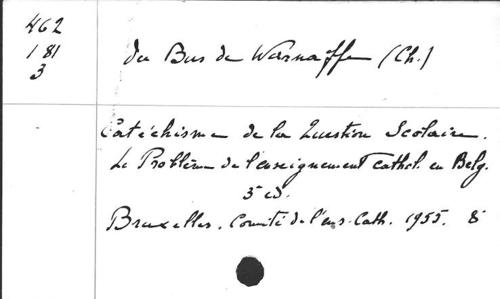 462
181
3
du Bus de Warnaffe (Ch.)
Catéchisme de la Question Scolaire.
Le Problème de l'enseignement cathol. en Belg.
3e éd.
Bruxelles. Comité de l'ens. Cath. 1955. 8°